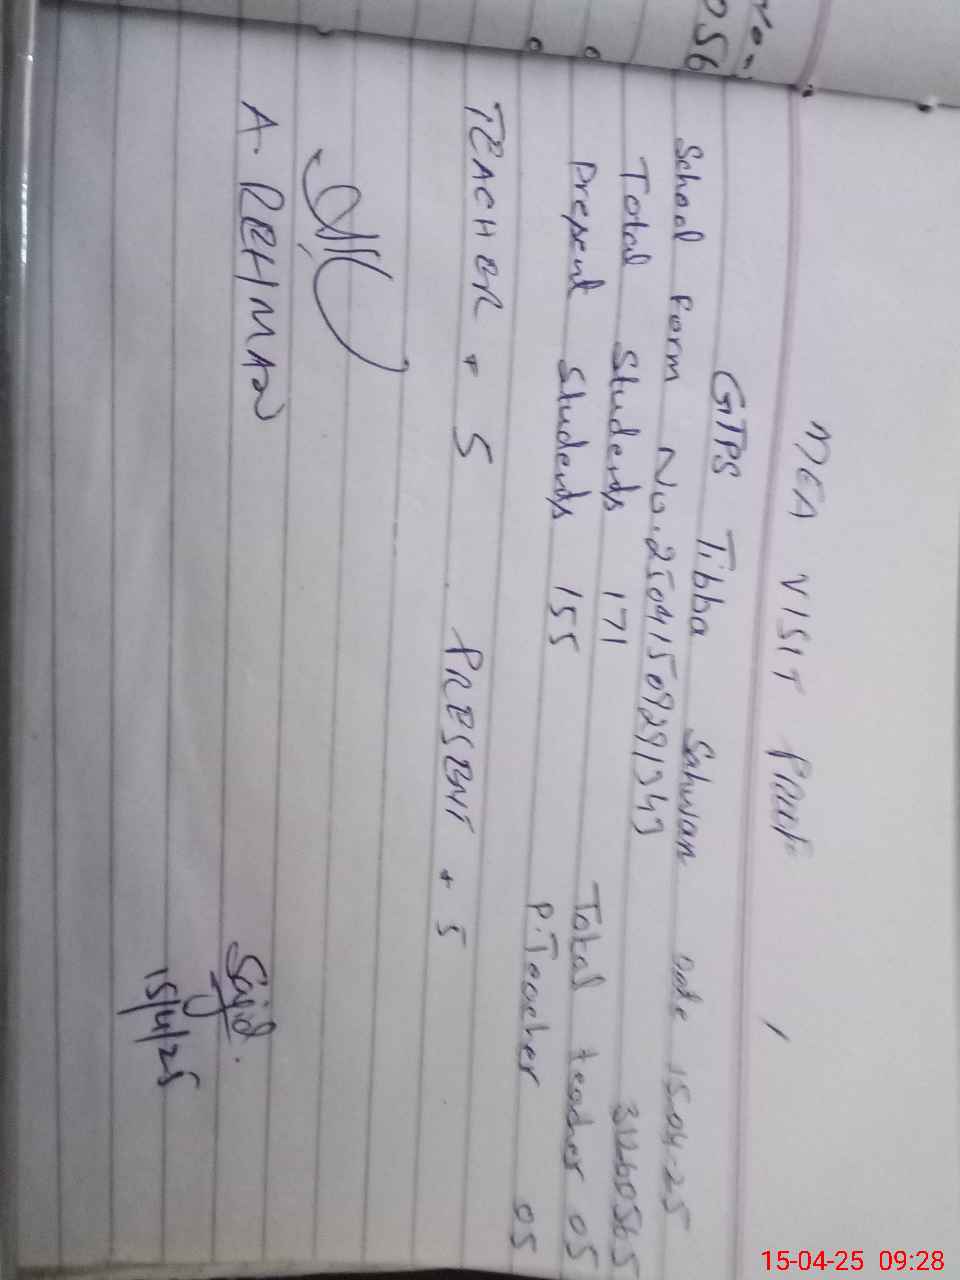 MEA VISIT Proof
GTPS Tibba Sahuwan Date 15.04.25
School Form No. 25041509291343 31260565
Total Students 171 Total teacher 05
Present Students 155 P.Teacher 05
TEACHER + 5 PRESENT + 5
A. REHMAN
Sajid.
15/4/25
056
15-04-25 09:28